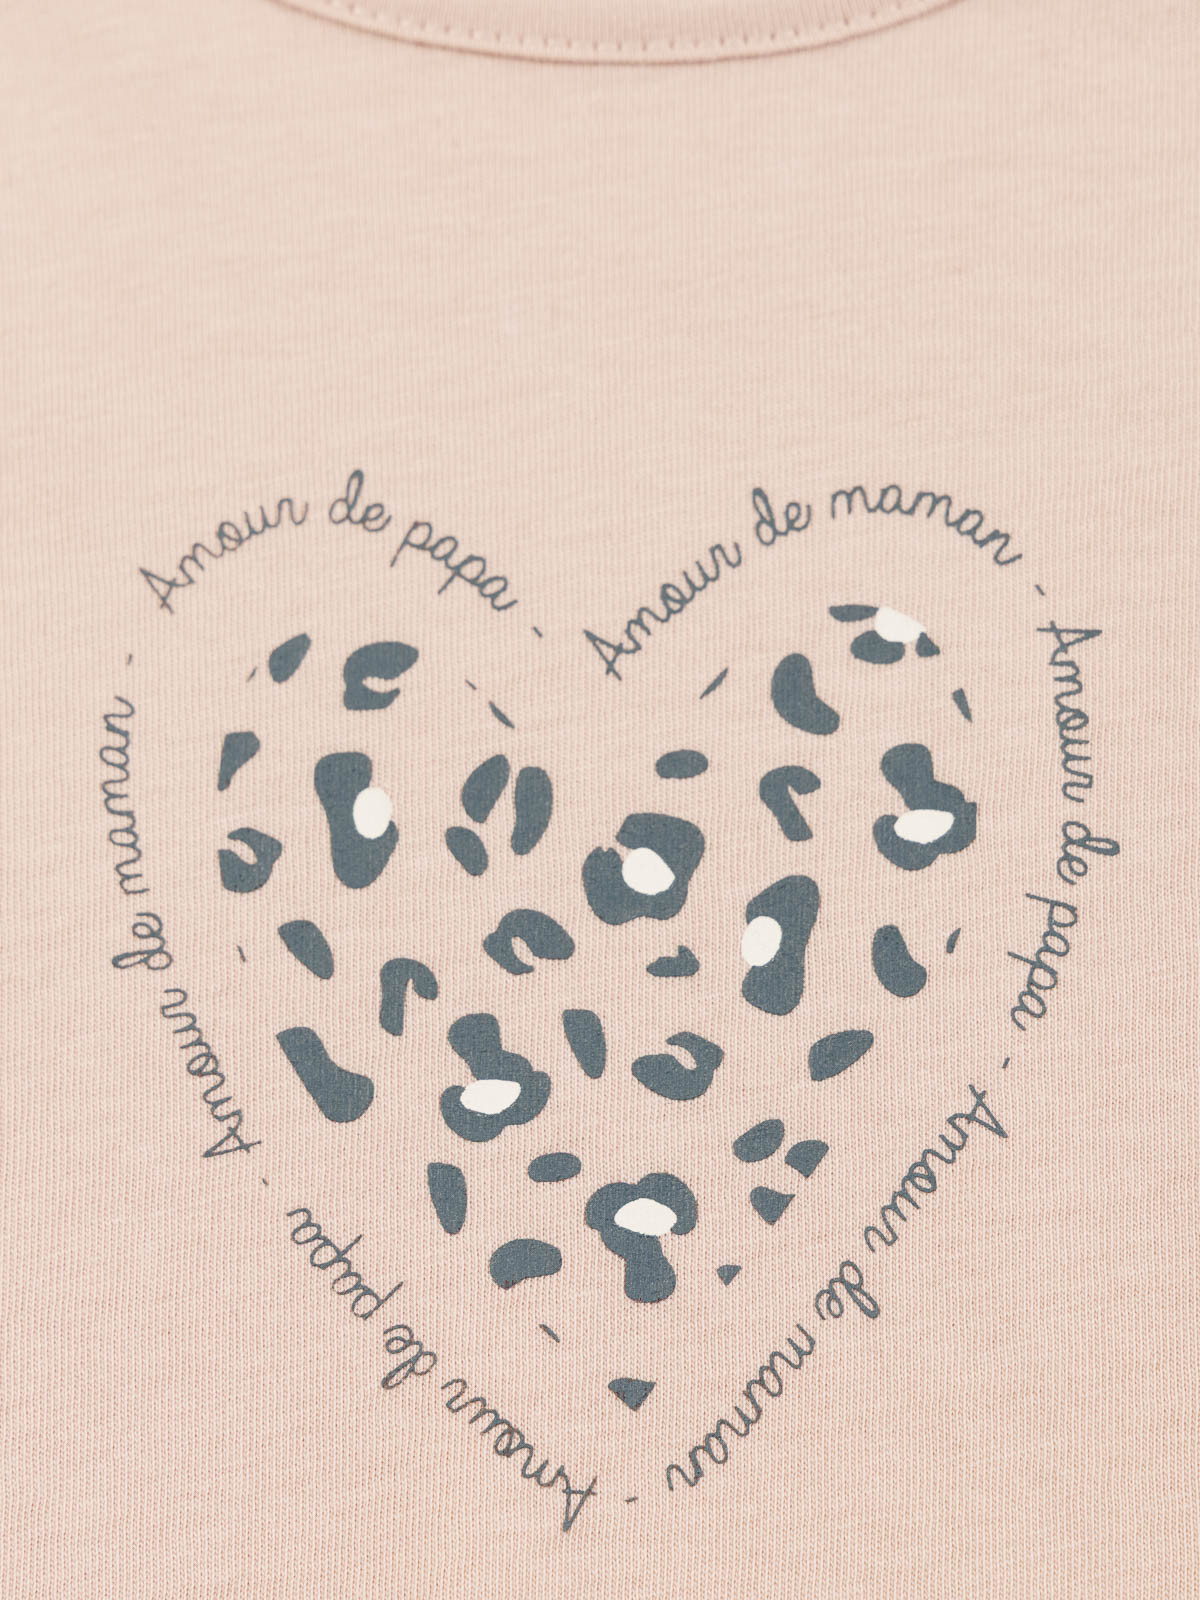 Amour de papa -
Amour de maman -
Amour de papa -
Amour de maman -
Amour de papa -
Amour de maman -